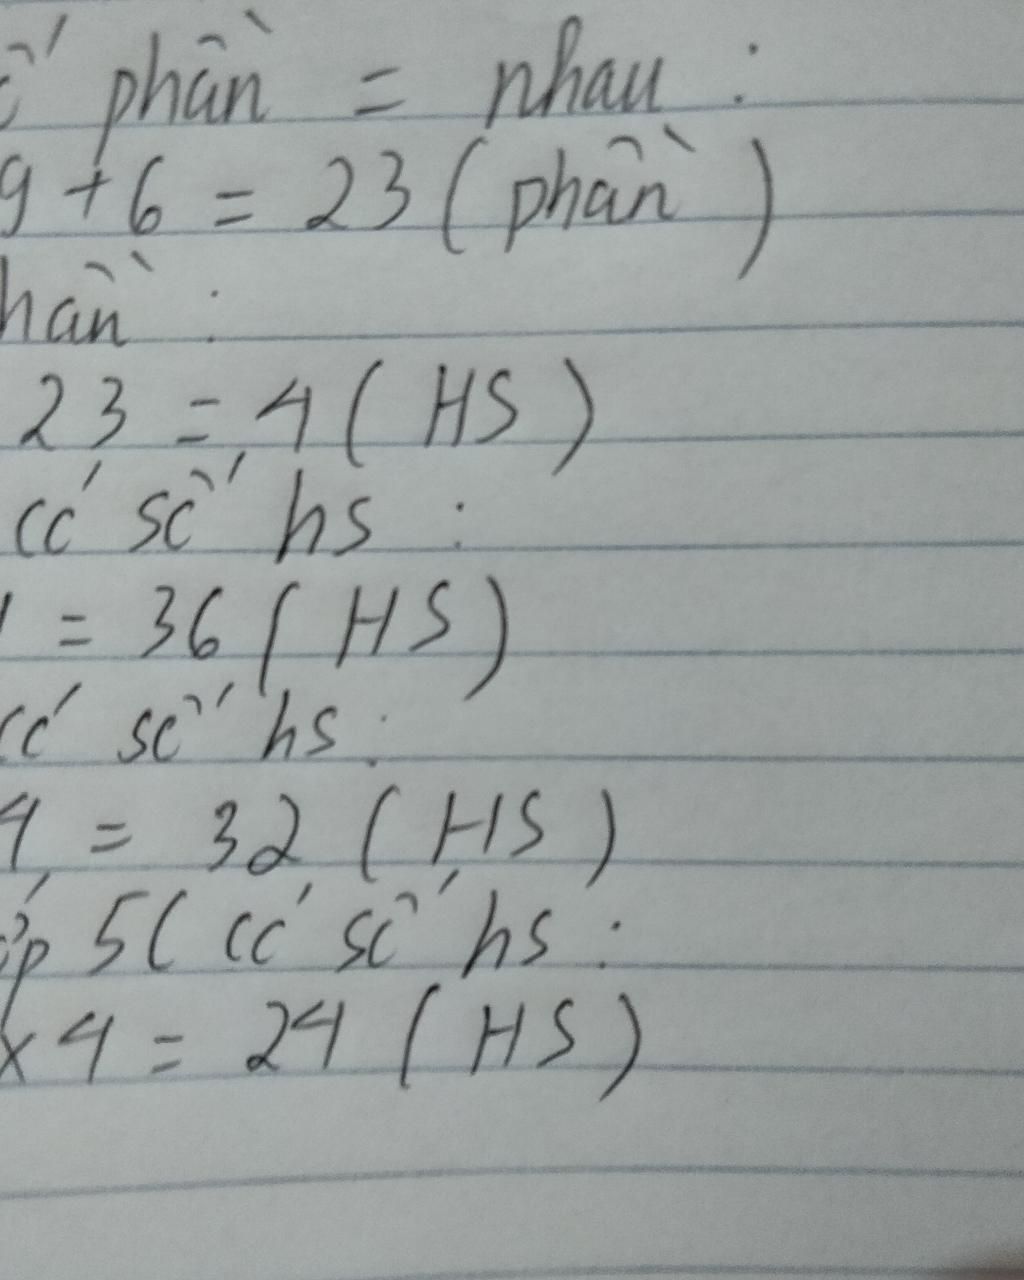 phần = nhau :
9 + 6 = 23 ( phần )
hần :
23 = 4 ( HS )
có số hs :
= 36 ( HS )
có số hs :
4 = 32 ( HS )
ớp 5C có số hs :
x 4 = 24 ( HS )